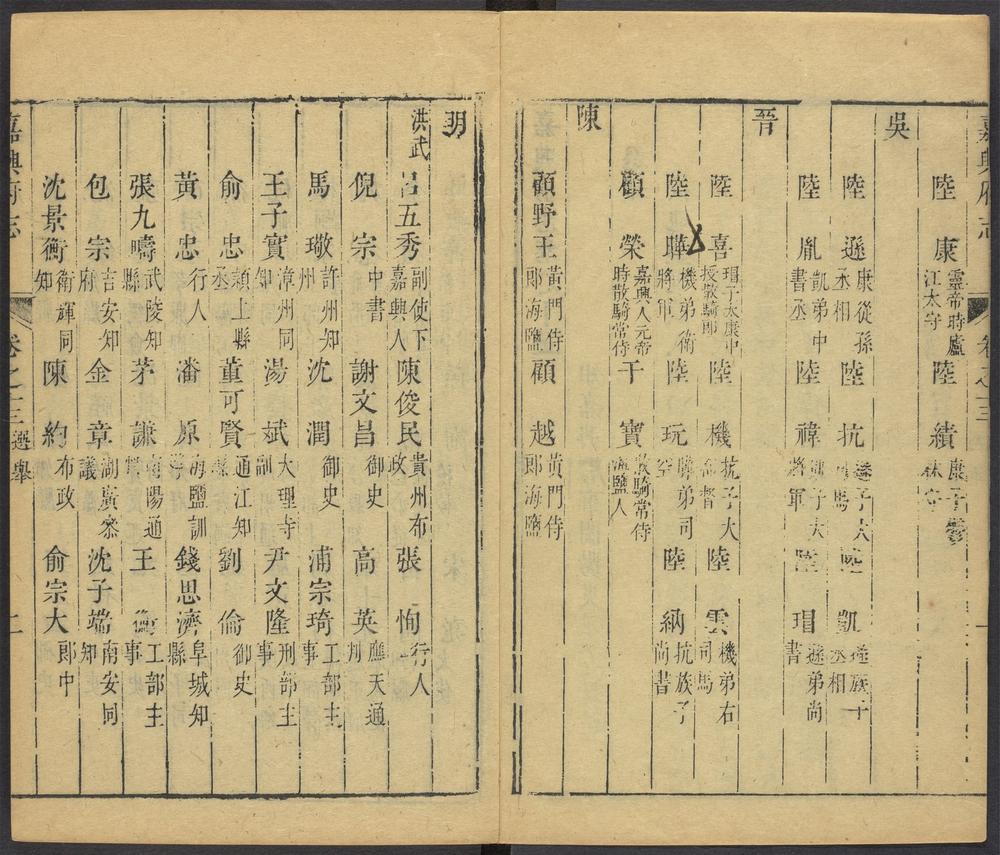 嘉興府志 卷之十三 一
陸康 靈帝時廬江太守 陸績 康子
吳
陸遜 康從孫丞相 陸抗 遜子大司馬 陸凱 遜族子丞相
陸胤 凱弟中書丞 陸禕 凱子大將軍 陸瑁 遜弟尚書
晉
陸喜 瑁子太康中授散騎郎 陸機 抗子大都督 陸雲 機弟右司馬
陸曄 機弟衛將軍 陸玩 曄弟司空 陸納 抗族子尚書
顧榮 嘉興人元帝時散騎常侍 干寶 散騎常侍海鹽人
陳
顧野王 黃門侍郎海鹽 顧越 黃門侍郎海鹽
明
洪武 呂五秀 副使下嘉興人 陳俊民 貴州布政 張恂 行人
倪宗 中書 謝文昌 御史 高英 應天通判
馬璥 許州知州 沈潤 御史 浦宗琦 工部主事
王子實 漳州同知 湯斌 大理寺副 尹文隆 刑部主事
俞忠 潁上縣丞 董可賢 通江知縣 劉倫 御史
黃忠 行人 潘原 海鹽訓導 錢思濟 阜城知縣
張九疇 武陵知縣 茅謙 南陽通判 王 工部主事
包宗 吉安知府 金章 湖廣叅議 沈子端 南安同知
沈景衡 衛輝同知 陳約 布政 俞宗大 郎中
嘉興府志 卷之十三 選舉 二